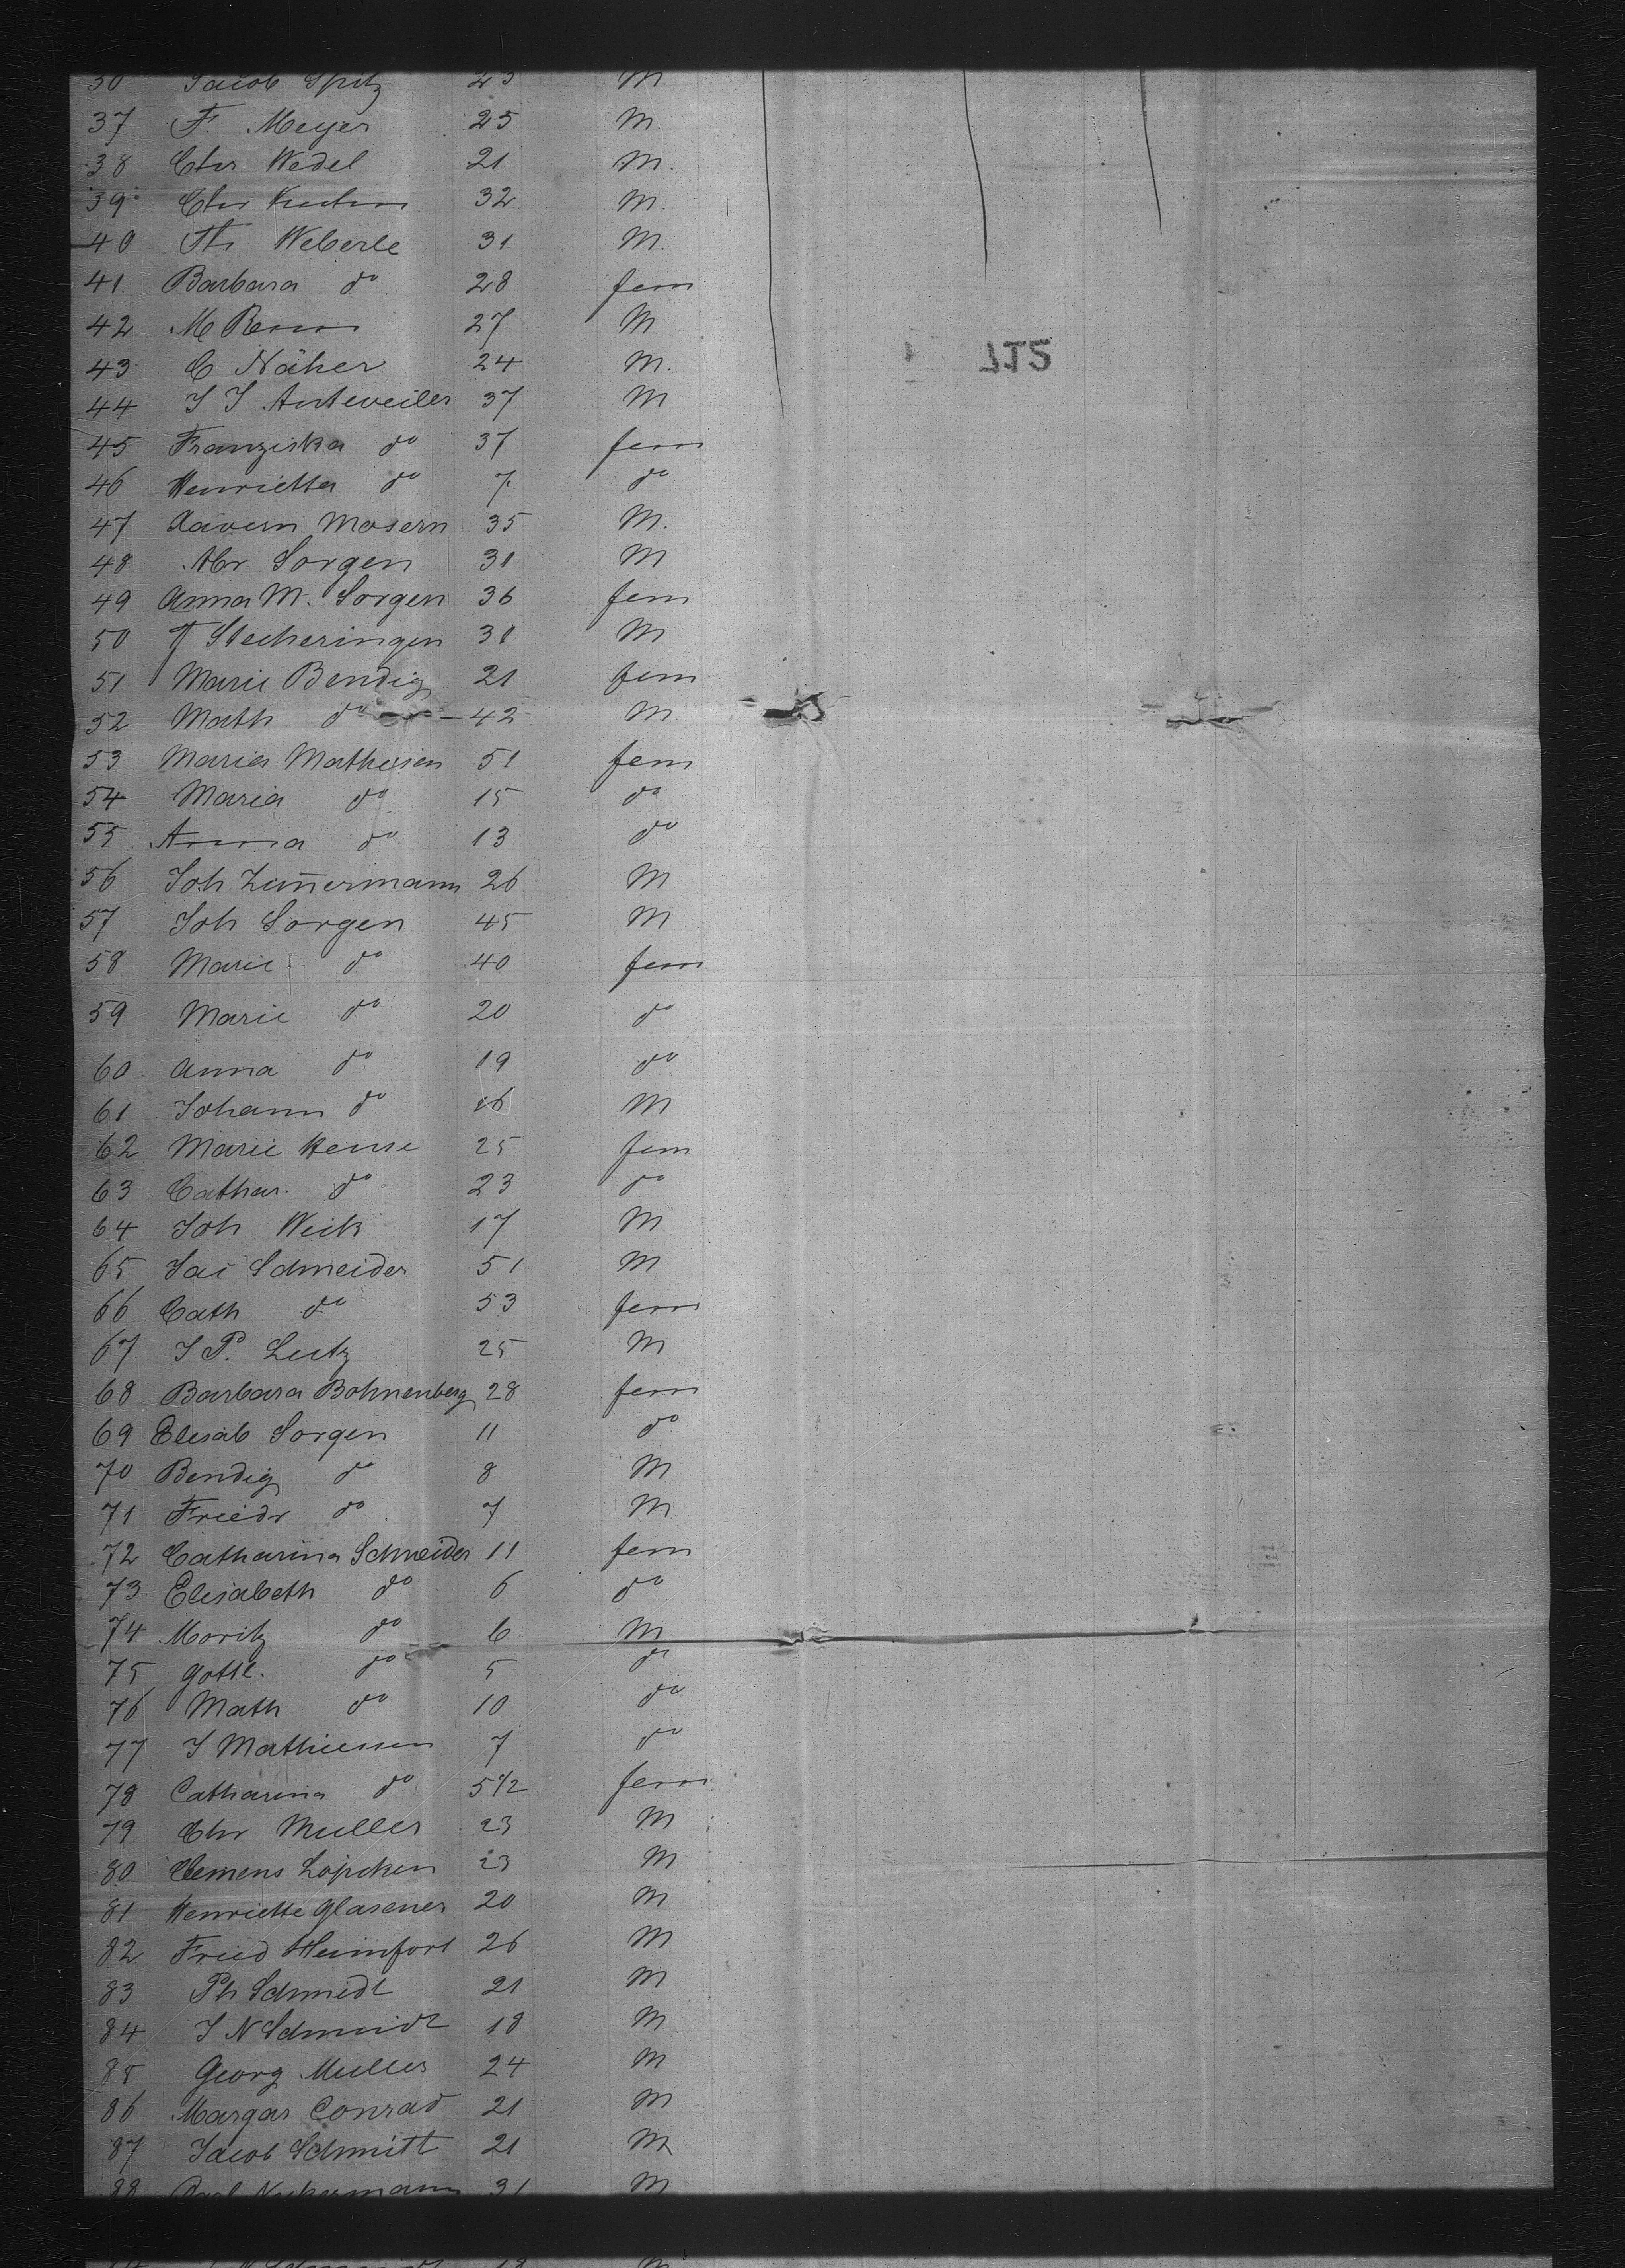 Jacob Spitz M
37 F. Meyer 25 M.
38 Chr. Wedel 21 M.
39 Chr 32 M.
40 Weberle 31 M.
41. Barbara do 28 fem
42 M 27 M
43 C Näher 24 M.
44 J J Antweiler 37 M
45 Franziska do 37 fem
46 Henrietta do 7 do
47 Xavern Mosern 35 M.
48 Sorgen 31 M
49 Anna M. Sorgen 36 fem
50 Stecheringen 31 M
51 Marie Bendig 21 fem
52 Math do 42 M.
53 Maria Mathesien 51 fem
54 Maria do 15 do
55 Anna do 13 do
56 Joh Zim̅ermann 26 M
57 Joh Sorgen 45 M
58 Marie do 40 fem
59 Marie do 20 do
60 Anna do 19 do
61 Johann do 16 M
62 Marie Hense 25 fem
63 Cathar. do 23 do
64 Joh Weik 17 M
65 Jac Schneider 51 M
66 Cath do 53 fem
67 J P. Lutz 25 M
68 Barbara Bohnenberg 28 fem
69 Elisab Sorgen 11 do
70 Bendig do 8 M
71 Friedr do 7 M
72 Catharina Schneider 11 fem
73 Elisabeth do 6 do
74 Moritz do 6 M
75 Gottl. do 5 do
76 Math do 10 do
77 J Mathiessen 7 do
78 Catharina do 5 1/2 fem
79 Chr Muller 23 M
80 Clemens 23 M
81 Henriette Glasener 20 M
82 Fried Heimfort 26 M
83 Ph Schmidt 21 M
84 J N Schmidt 18 M
85 Georg Muller 24 M
86 Margar Conrad 21 M
87 Jacob Schmitt 21 M
88 31 M
715